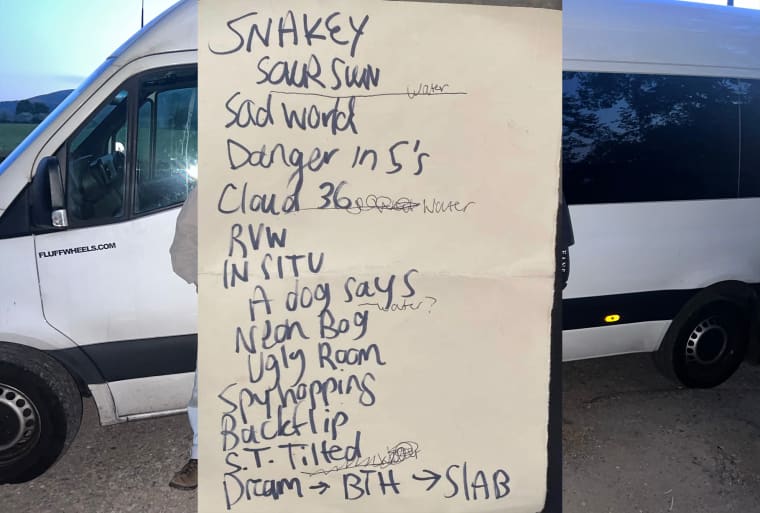 SNAKEY
SOUR SUN
water
Sad World
Danger in 5's
Cloud 36 Water
RVW
IN SITU
A dog says
water?
Neon Bog
Ugly Room
Spyhopping
Backflip
S.T. Tilted
Dream → BTH → SlAB
FLUFFWHEELS.COM